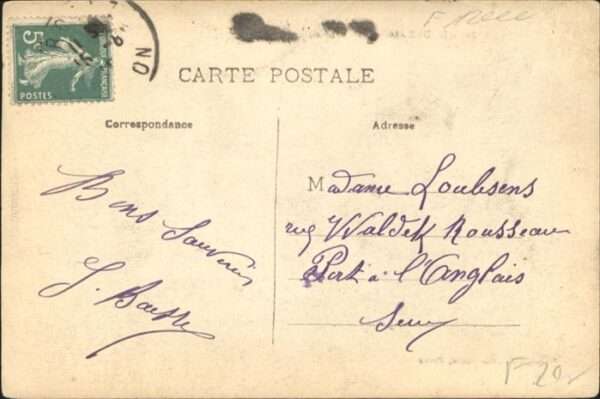 5
POSTES
CARTE POSTALE
Correspondance
Adresse
Bons Souvenirs
Madame Loubsens
rue Waldeck Rousseau
Port à l'Anglais
Seine
F 20